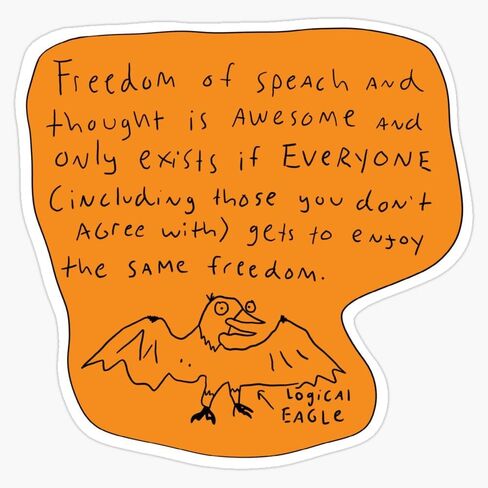 Freedom of speach and
thought is AWESOME and
only exists if EVERYONE
(including those you don't
Agree with) gets to enjoy
the same freedom.
Logical
EAGLE